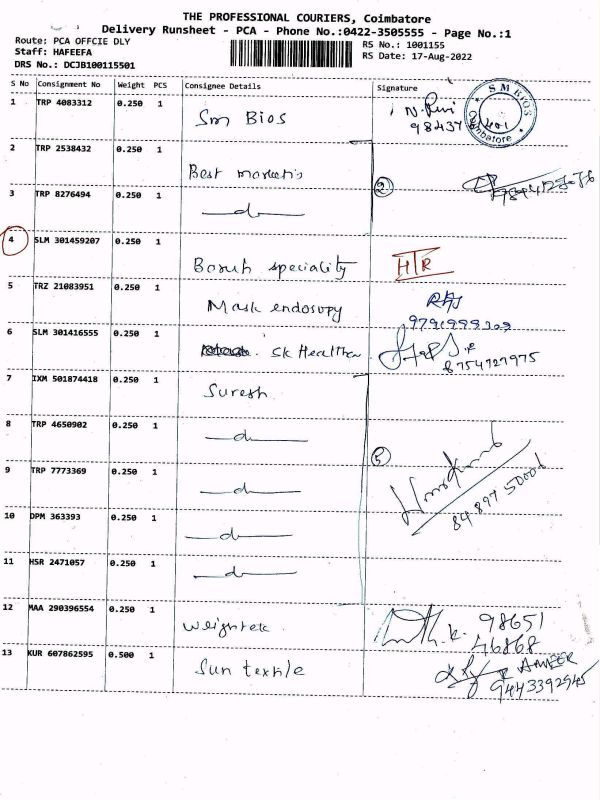 THE PROFESSIONAL COURIERS, Coimbatore
Delivery Runsheet - PCA - Phone No.:0422-3505555 - Page No.:1
Route: PCA OFFCIE DLY RS No.: 1001155
Staff: HAFEEFA RS Date: 17-Aug-2022
DRS No.: DCJB100115501
S No Consignment No Weight PCS Consignee Details Signature
1 TRP 4083312 0.250 1 Sm Bios
98437
SM BIOS Coimbatore
2 TRP 2538432 0.250 1 Best
2
3 TRP 8276494 0.250 1 do
4 SLM 301459207 0.250 1 speciality HTR
5 TRZ 21083951 0.250 1 Mask endosopy
6 SLM 301416555 0.250 1 SK
8754727975
7 IXM 501874418 0.250 1 Suresh
8 TRP 4650902 0.250 1 do
5
9 TRP 7773369 0.250 1 do
84 897 50006
10 DPM 363393 0.250 1 do
11 HSR 2471057 0.250 1 do
12 MAA 290396554 0.250 1 98651
46868
13 KUR 607862595 0.500 1 Sun textile AMEER
9443392945